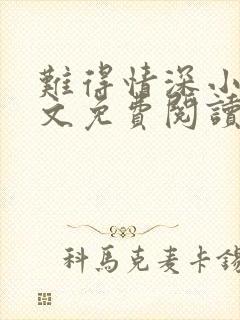 難得情深小
文免費閱讀
科馬克麦卡錫